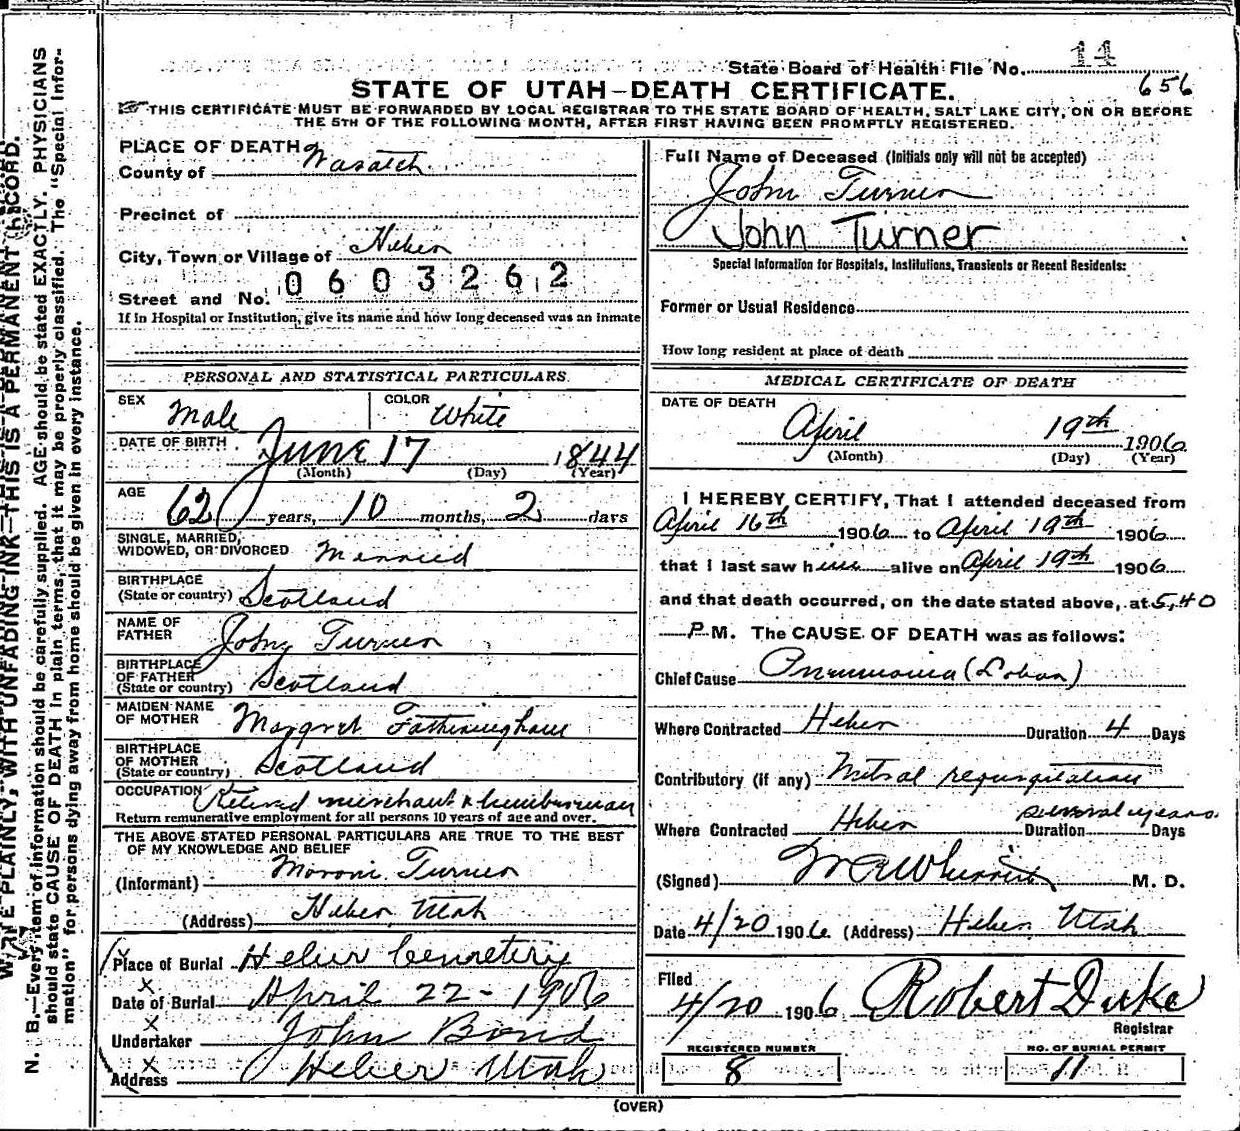 State Board of Health File No. 14
656
STATE OF UTAH—DEATH CERTIFICATE.
THIS CERTIFICATE MUST BE FORWARDED BY LOCAL REGISTRAR TO THE STATE BOARD OF HEALTH, SALT LAKE CITY, ON OR BEFORE
THE 5TH OF THE FOLLOWING MONTH, AFTER FIRST HAVING BEEN PROMPTLY REGISTERED.
PLACE OF DEATH
County of Wasatch
Precinct of
City, Town or Village of Heber
0603262
Street and No.
If in Hospital or Institution, give its name and how long deceased was an inmate
PERSONAL AND STATISTICAL PARTICULARS
SEX Male COLOR White
DATE OF BIRTH June 17 1844
(Month) (Day) (Year)
AGE 62 years, 10 months, 2 days
SINGLE, MARRIED,
WIDOWED, OR DIVORCED Married
BIRTHPLACE
(State or country) Scotland
NAME OF
FATHER John Turner
BIRTHPLACE
OF FATHER
(State or country) Scotland
MAIDEN NAME
OF MOTHER Margret Fatheringham
BIRTHPLACE
OF MOTHER
(State or country) Scotland
OCCUPATION Retired merchant & lumberman
Return remunerative employment for all persons 10 years of age and over.
THE ABOVE STATED PERSONAL PARTICULARS ARE TRUE TO THE BEST
OF MY KNOWLEDGE AND BELIEF
(Informant) Moroni Turner
(Address) Heber Utah
Place of Burial Heber Cemetery
X
Date of Burial April 22 - 1906
X
Undertaker John Bond
X
Address Heber Utah
Full Name of Deceased (Initials only will not be accepted)
John Turner
John Turner
Special Information for Hospitals, Institutions, Transients or Recent Residents:
Former or Usual Residence
How long resident at place of death
MEDICAL CERTIFICATE OF DEATH
DATE OF DEATH
April 19th 1906
(Month) (Day) (Year)
I HEREBY CERTIFY, That I attended deceased from
April 16th 1906 to April 19th 1906
that I last saw him alive on April 19th 1906
and that death occurred, on the date stated above, at 5,40
P M. The CAUSE OF DEATH was as follows:
Chief Cause Pneumonia (Lobar)
Where Contracted Heber Duration 4 Days
Contributory (if any) Mitral regurgitation
several years
Where Contracted Heber Duration Days
(Signed) M. D.
Date 4/20 1906 (Address) Heber Utah
Filed
4/20 1906 Robert Duke
Registrar
REGISTERED NUMBER
8
NO. OF BURIAL PERMIT
11
(OVER)
WRITE PLAINLY, WITH UNFADING INK—THIS IS A PERMANENT RECORD.
N. B.—Every item of information should be carefully supplied. AGE should be stated EXACTLY. PHYSICIANS
should state CAUSE OF DEATH in plain terms, that it may be properly classified. The "Special Infor-
mation" for persons dying away from home should be given in every instance.